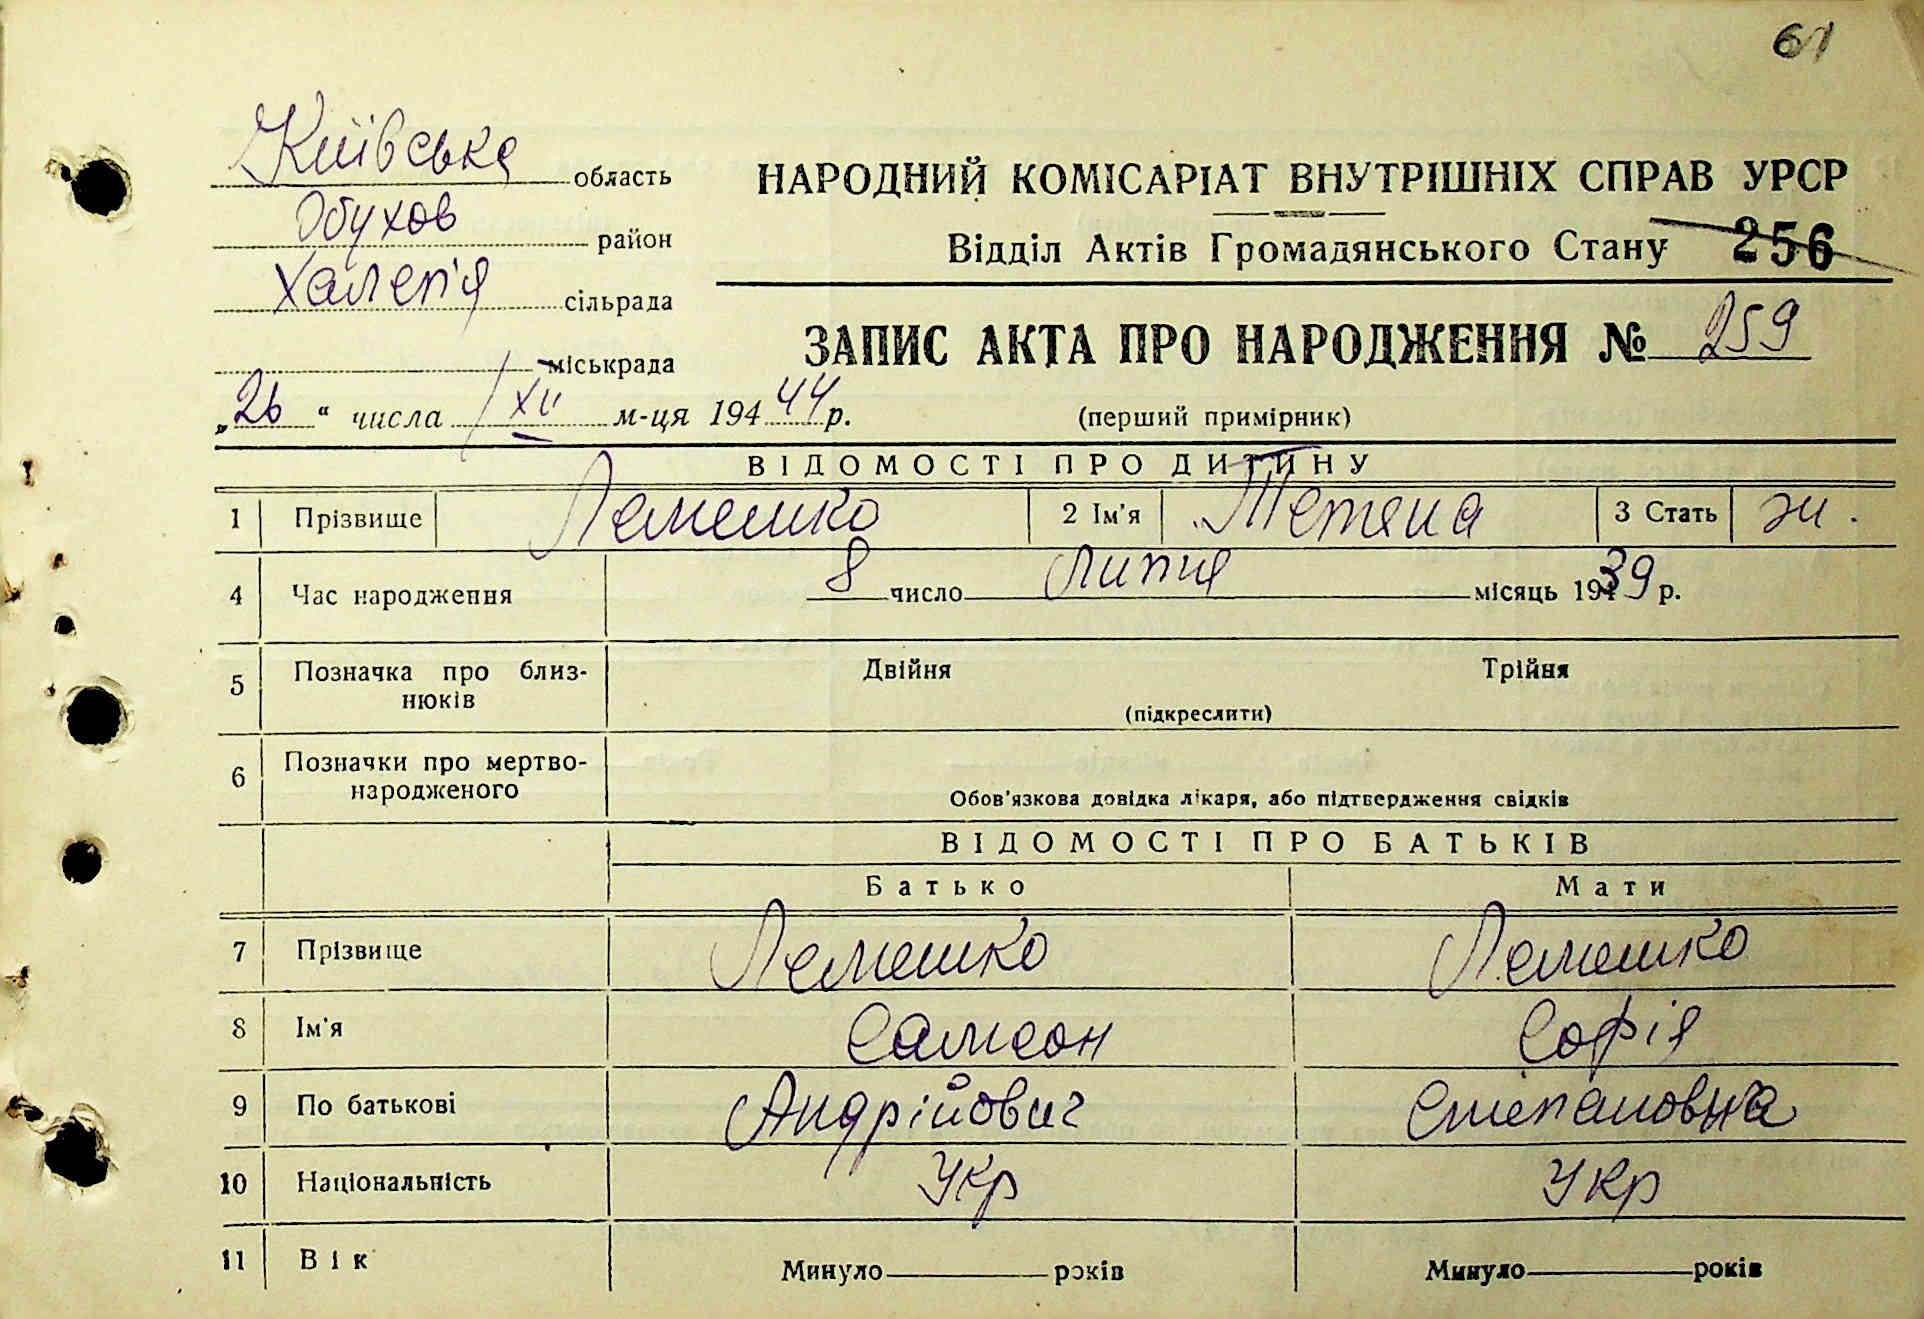 61
Київська область
Обухов район
Халеп'я сільрада
міськрада
„26“ числа XII м-ця 194 44 р.
НАРОДНИЙ КОМІСАРІАТ ВНУТРІШНІХ СПРАВ УРСР
Відділ Актів Громадянського Стану 256
ЗАПИС АКТА ПРО НАРОДЖЕННЯ № 259
(перший примірник)
ВІДОМОСТІ ПРО ДИТИНУ
1 Прізвище Лемешко 2 Ім'я Тетяна 3 Стать ж.
4 Час народження 8 число Липня місяць 1939 р.
5 Позначка про близ-
нюків
Двійня Трійня
(підкреслити)
6 Позначки про мертво-
народженого
Обов'язкова довідка лікаря, або підтвердження свідків
ВІДОМОСТІ ПРО БАТЬКІВ
Батько Мати
7 Прізвище Лемешко Лемешко
8 Ім'я Самсон Софія
9 По батькові Андрійович Степановна
10 Національність Укр Укр
11 Вік Минуло років Минуло років